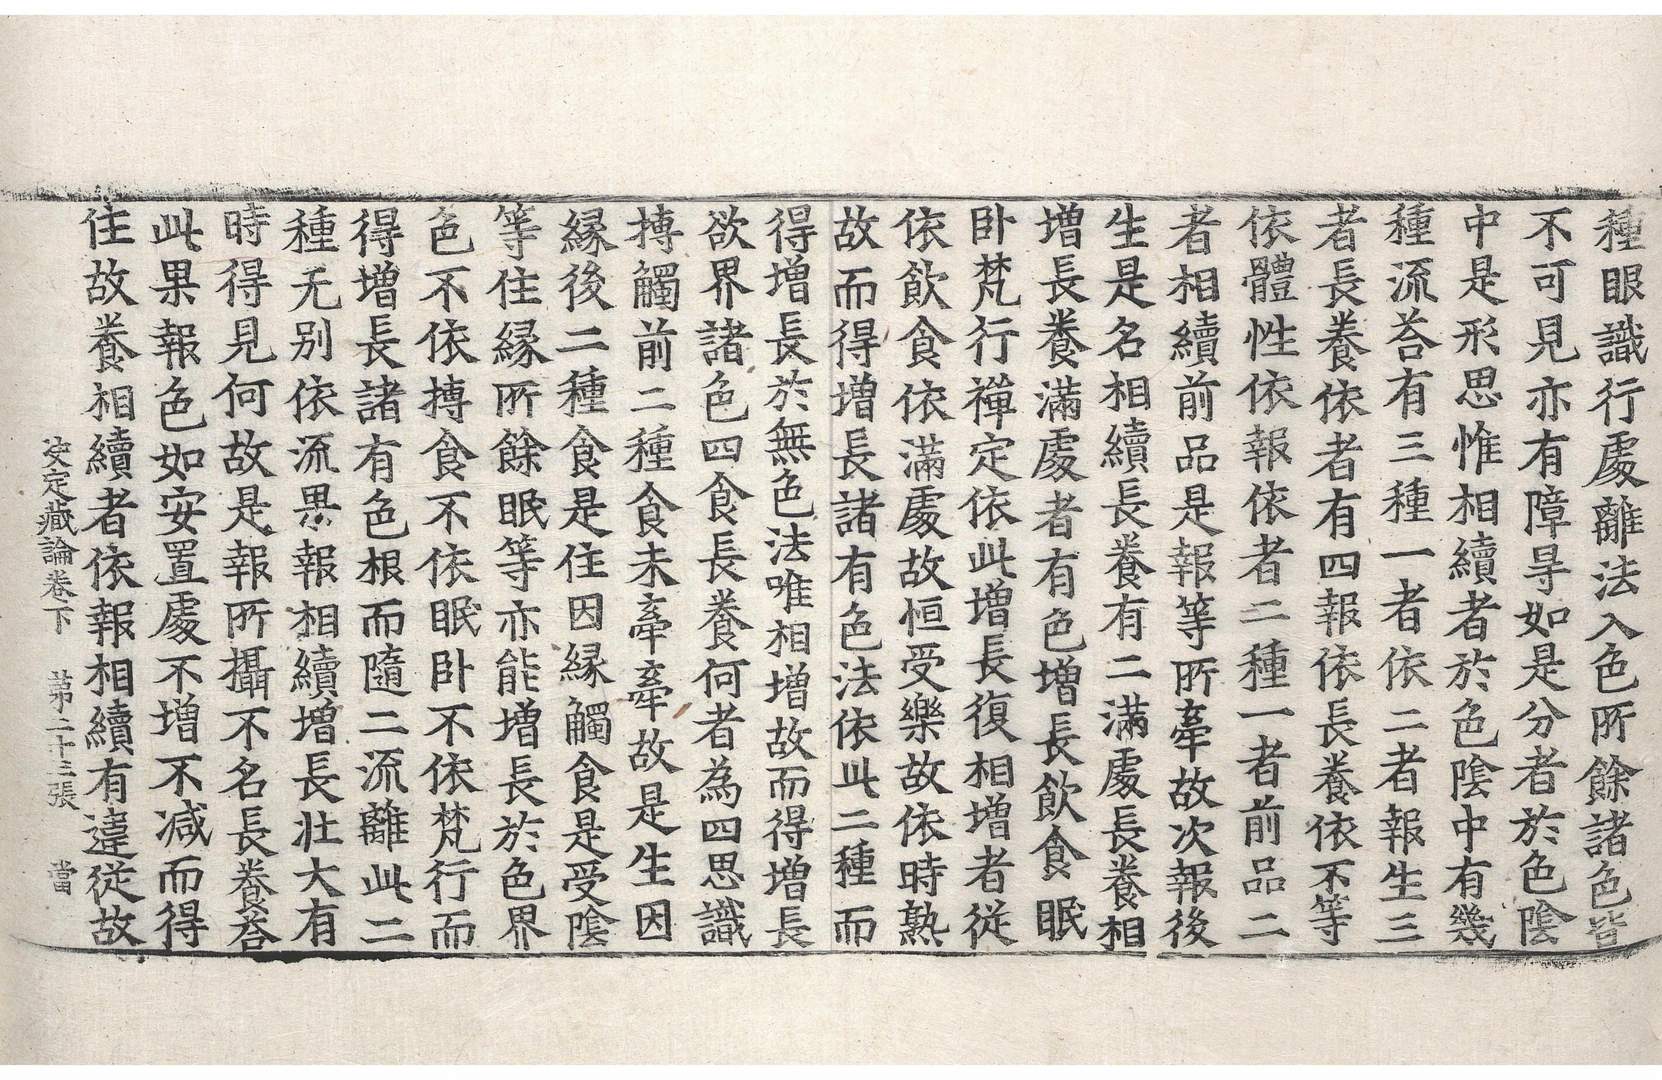 種眼識行處離法入色所餘諸色皆
不可見亦有障㝵如是分者於色陰
中是形思惟相續者於色陰中有幾
種流荅有三種一者依二者報生三
者長養依者有四報依長養依不等
依體性依報依者二種一者前品二
者相續前品是報等所牽故次報後
生是名相續長養有二滿處長養相
增長養滿處者有色增長飲食眠
卧梵行禪定依此增長復相增者従
依飲食依滿處故恒受樂故依時熟
故而得增長諸有色法依此二種而
得增長於無色法唯相增故而得增長
欲界諸色四食長養何者為四思識
摶觸前二種食未牽牽故是生因
縁後二種食是住因縁觸食是受陰
等住縁所餘眠等亦能增長於色界
色不依摶食不依眠卧不依梵行而
得增長諸有色根而隨二流離此二
種无别依流果報相續增長壯大有
時得見何故是報所攝不名長養荅
此果報色如安置處不增不减而得
住故養相續者依報相續有違従故
决定藏論卷下 苐二十三張 當